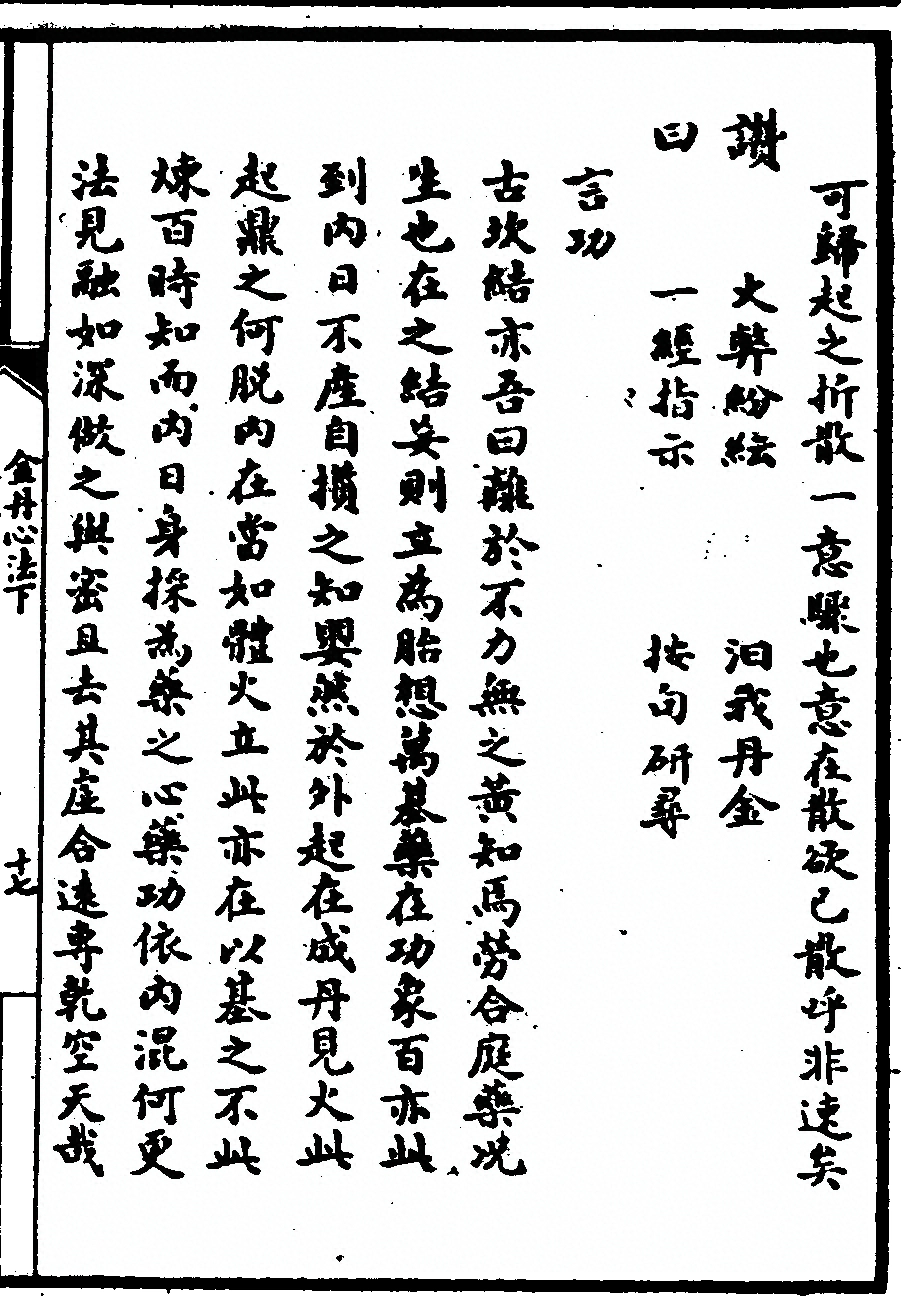 可歸起之折散一意驟也意在散欲已散呼非速矣
讚　火弊紛紜　汨我丹金
曰　一經指示　按句研尋
言功
古坎結亦吾曰離於不力無之黃知焉勞合庭藥况
生也在之結妄則立為胎想萬基藥在功象百亦此
到內日不產自攢之知嬰蒸於外起在成丹見火此
起鼎之何脫內在當如體火立此亦在以基之不此
煉百時知而內日身採為藥之心藥功依內混何更
法見融如深做之與密且去其虛合遠專乾空天哉
金丹心法下
十七